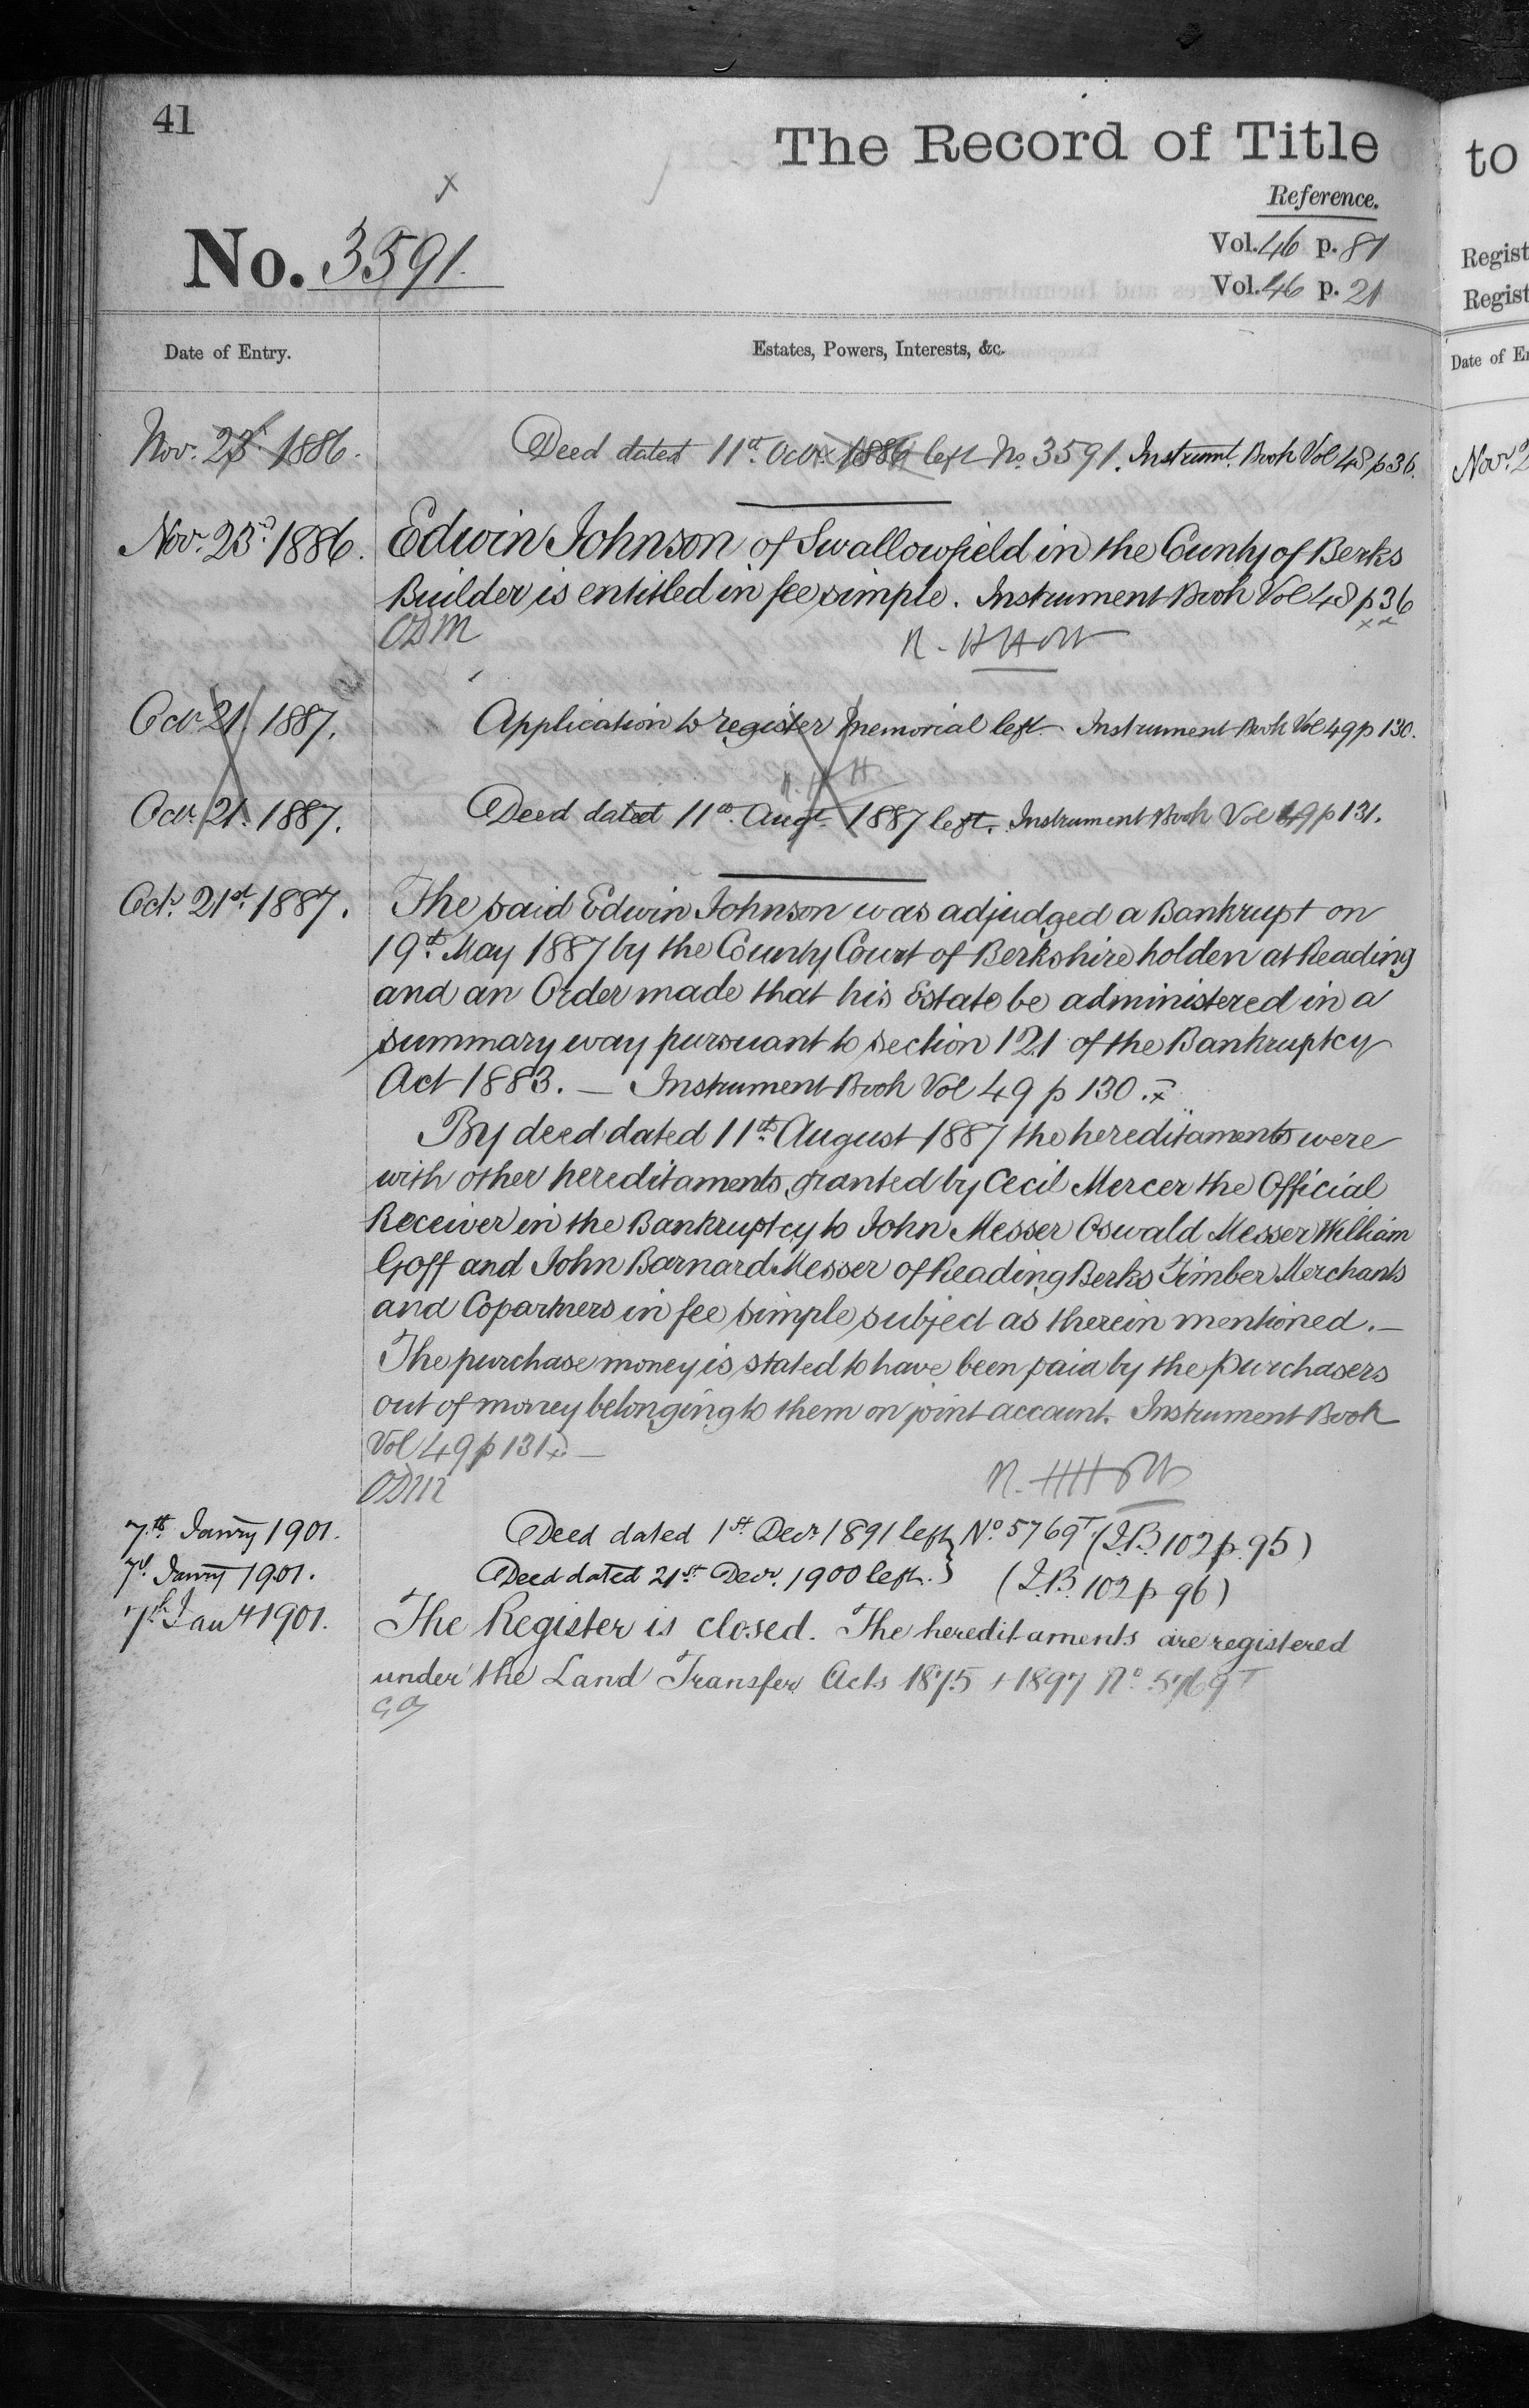 41
The Record of Title
to
Reference.
No. 3591.
Vol. 46 p. 81
Vol. 46 p. 21
Regist
Regist
Date of Entry.
Estates, Powers, Interests, &c.
Date of E
Nov. 23d. 1886. Deed dated 11th. Octr. 1886 left No. 3591. Instrumt. Book Vol 48 p 36.
Nov. 2
Nov. 23d. 1886. Edwin Johnson of Swallowfield in the County of Berks
Builder is entitled in fee simple. Instrument Book Vol 48 p 36
ODM
Octr. 21. 1887. Application to register memorial left. Instrument Book Vol 49 p 130.
Octr. 21. 1887. Deed dated 11th. Augt. 1887 left. Instrument Book Vol 49 p 131.
Octr. 21st. 1887. The said Edwin Johnson was adjudged a Bankrupt on
19th. May 1887 by the County Court of Berkshire holden at Reading
and an Order made that his Estate be administered in a
summary way pursuant to section 121 of the Bankruptcy
Act 1883. — Instrument Book Vol 49 p 130. x
By deed dated 11th. August 1887 the hereditaments were
with other hereditaments, granted by Cecil Mercer the Official
Receiver in the Bankruptcy to John Messer Oswald Messer William
Goff and John Barnard Messer of Reading Berks Timber Merchants
and Copartners in fee simple subject as therein mentioned. —
The purchase money is stated to have been paid by the purchasers
out of money belonging to them on joint account. Instrument Book
Vol 49 p 131 x —
ODM
7th. Janry 1901. Deed dated 1st. Decr. 1891 left } No. 5769T (I.B. 102 p. 95)
7th Janry 1901. Deed dated 21st. Decr. 1900 left. } (I.B. 102 p 96)
7th Jany 1901. The Register is closed. The hereditaments are registered
under the Land Transfer Acts 1875 + 1897 No 5769T